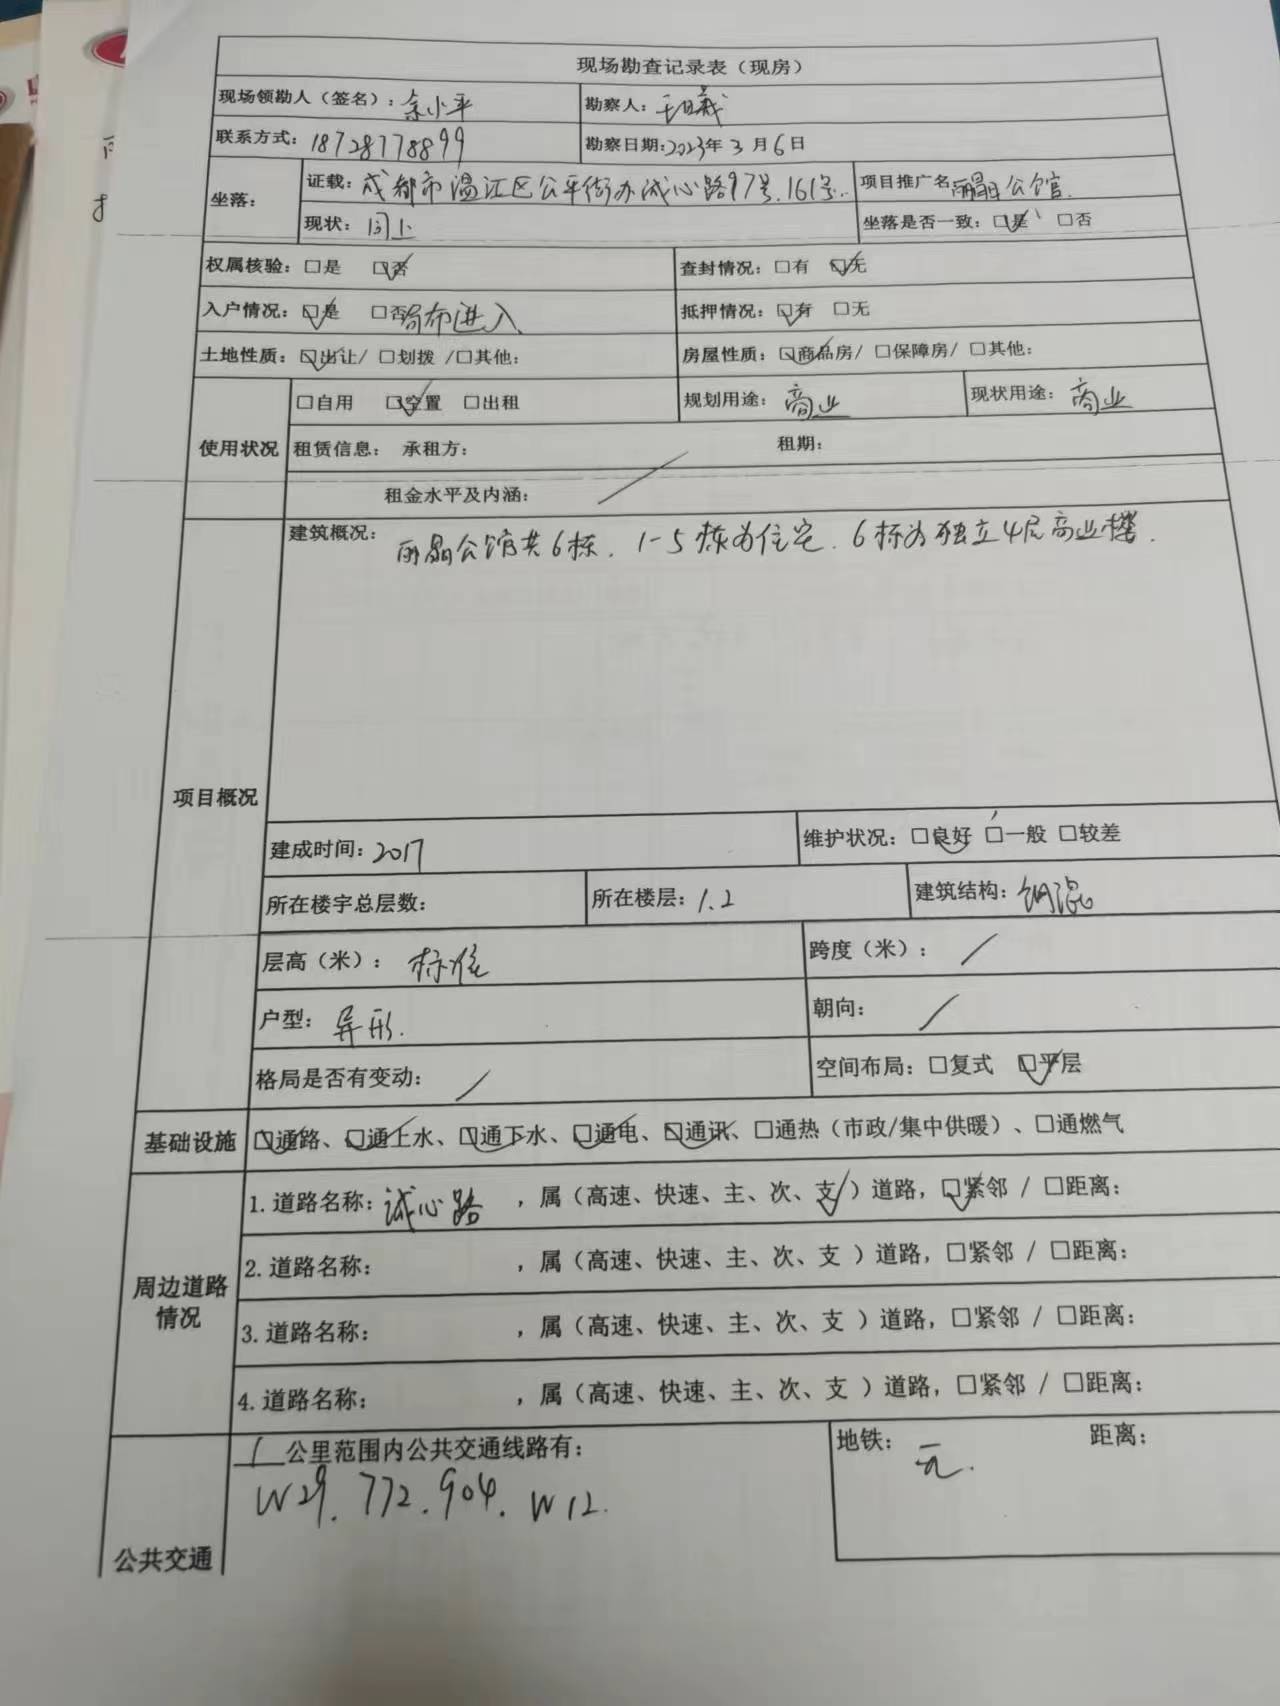 现场勘查记录表（现房）
现场领勘人（签名）：余小平 勘察人：王曦
联系方式：18728778899 勘察日期：2023年3月6日
坐落： 证载：成都市温江区公平街办诚心路97号.161号.. 项目推广名 丽晶公馆.
现状：同上 坐落是否一致：☑是 □否
权属核验：□是 ☑否 查封情况：□有 ☑无
入户情况：☑是 □否 局部进入 抵押情况：☑有 □无
土地性质：☑出让/ □划拨 /□其他： 房屋性质：☑商品房/ □保障房/ □其他：
使用状况 □自用 ☑空置 □出租 规划用途：商业 现状用途：商业
租赁信息： 承租方： 租期：
租金水平及内涵： /
项目概况 建筑概况：丽晶公馆共6栋. 1-5栋为住宅. 6栋为独立4层商业楼.
建成时间：2017 维护状况：☑良好 □一般 □较差
所在楼宇总层数： 所在楼层：1.2 建筑结构：钢混
层高（米）：标准 跨度（米）： /
户型：异形. 朝向： /
格局是否有变动： / 空间布局：□复式 ☑平层
基础设施 ☑通路、☑通上水、☑通下水、☑通电、☑通讯、□通热（市政/集中供暖）、□通燃气
周边道路情况 1.道路名称：诚心路 ，属（高速、快速、主、次、支✓）道路，☑紧邻 / □距离：
2.道路名称： ，属（高速、快速、主、次、支 ）道路，□紧邻 / □距离：
3.道路名称： ，属（高速、快速、主、次、支 ）道路，□紧邻 / □距离：
4.道路名称： ，属（高速、快速、主、次、支 ）道路，□紧邻 / □距离：
公共交通 1 公里范围内公共交通线路有： 地铁：无. 距离：
W29. 772. 904. W12.